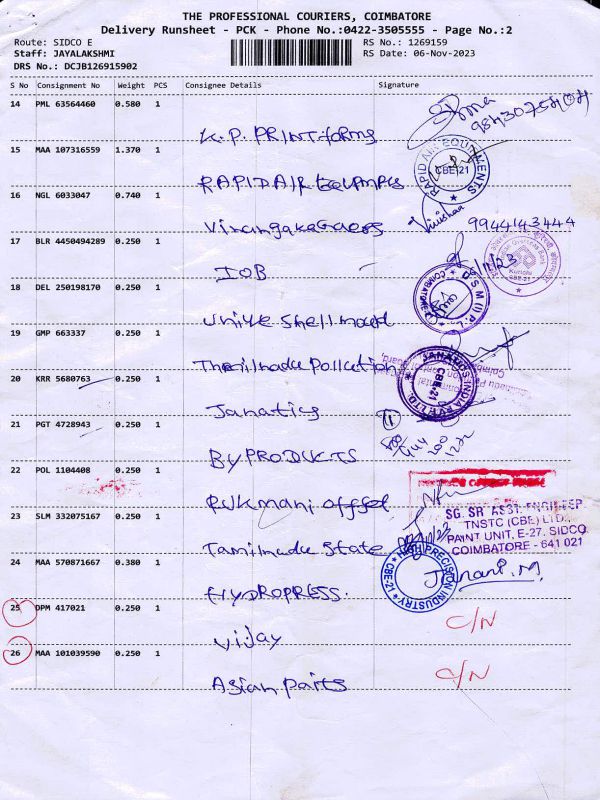 THE PROFESSIONAL COURIERS, COIMBATORE
Delivery Runsheet - PCK - Phone No.:0422-3505555 - Page No.:2
Route: SIDCO E
RS No.: 1269159
Staff: JAYALAKSHMI
RS Date: 06-Nov-2023
DRS No.: DCJB126915902
S No Consignment No Weight PCS Consignee Details Signature
14 PML 63564460 0.580 1
K.P. PRINT forms
15 MAA 107316559 1.370 1
RAPID AIR EQUIPMENTS
CBE-21
RAPID AIR
16 NGL 6033047 0.740 1
9944143444
17 BLR 4450494289 0.250 1
IOB
Kurichi
CBE-21
18 DEL 250198170 0.250 1
COIMBATORE
S M (I) P. L.
19 GMP 663337 0.250 1
Pollution
20 KRR 5680763 0.250 1
JANATICS INDIA PVT. LTD.
CBE-21
Janatics
21 PGT 4728943 0.250 1
1
BY PRODUCTS
22 POL 1104408 0.250 1
Rukmani offset
SG. SR ASST. ENGINEER
TNSTC (CBE) LTD.
PAINT UNIT, E-27. SIDCO
COIMBATORE - 641 021
23 SLM 332075167 0.250 1
Tamilnadu State
24 MAA 570871667 0.380 1
HIGH PRECISION INDUSTRY
CBE-21
Janani.M
HYDROPRESS.
25 DPM 417021 0.250 1
C/N
Vijay
26 MAA 101039590 0.250 1
C/N
Asian Parts